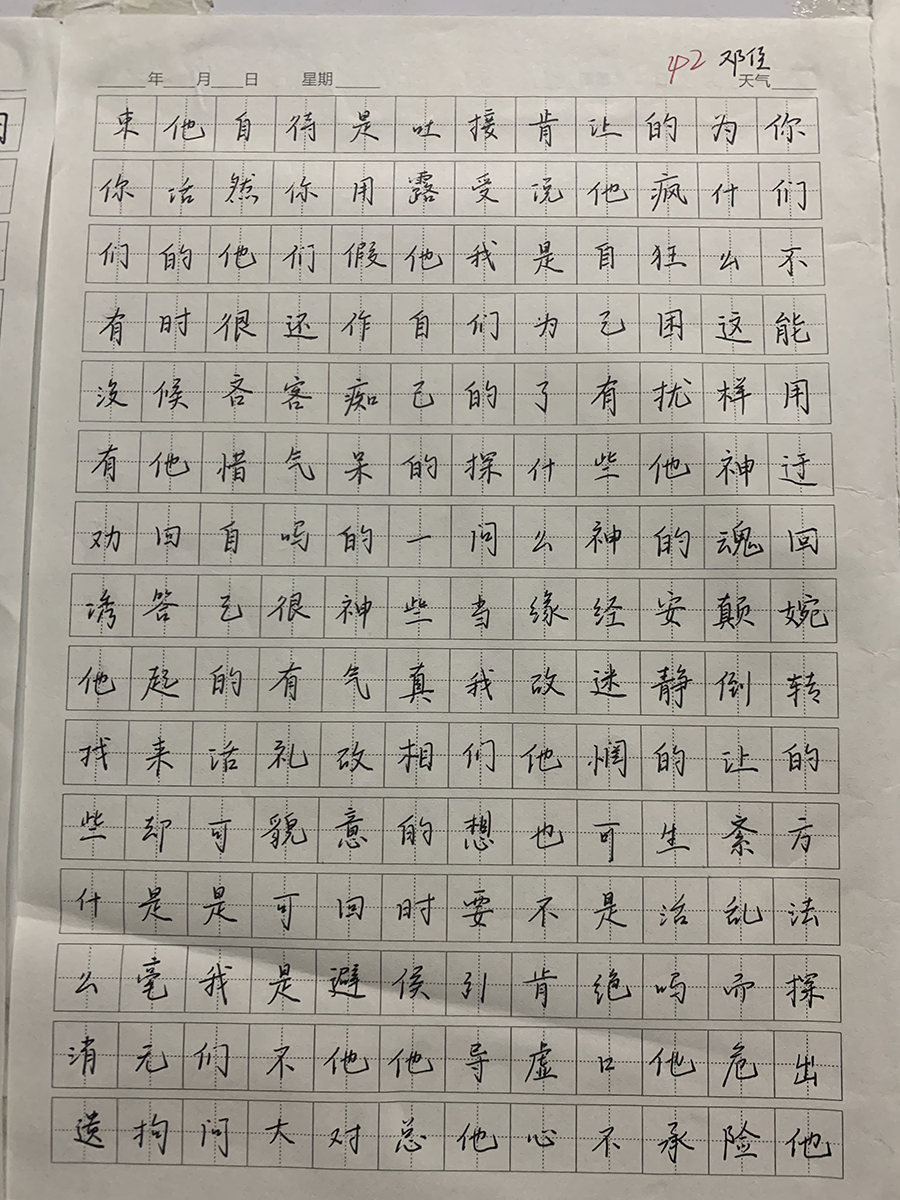 年 月 日 星期
42 邓佳
天气
你们不能用迂回婉转的方法探出他
为什么这样神魂颠倒让紊乱而危险
的疯狂困扰他的安静的生活吗他承
让他自己有些神经迷惘可是绝口不
肯说是为了什么缘故他也不肯虚心
接受我们的探问当我们想要引导他
吐露他自己的一些真相的时候他总
是用假作痴呆的神气故意回避他对
待你们还客气吗很有礼貌可是不大
自然他很吝惜自己的话可是我们问
他话的时候他回答起来却是毫无拘
束你们有没有劝诱他找些什么消遣